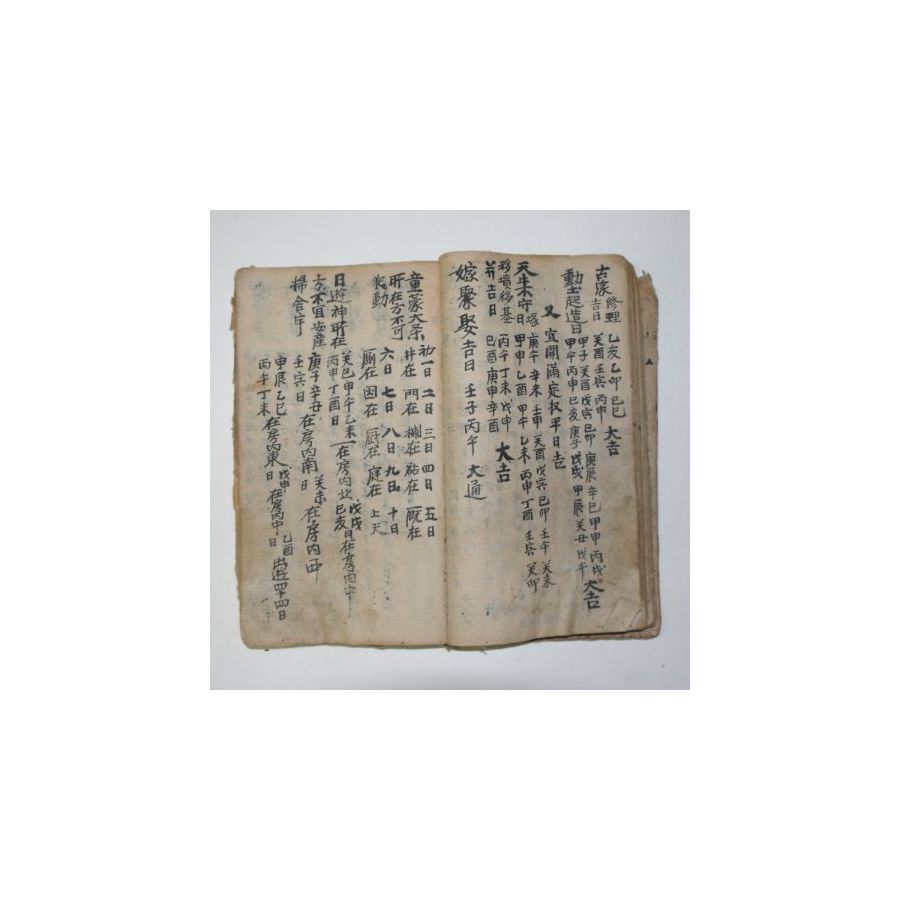 古家修理吉日 乙亥乙卯己巳 大吉
癸酉壬寅丙申 庚辰辛巳甲申丙戌 大吉
動土起造日 甲子癸酉戊寅己卯
甲午丙申己亥庚子戊戌甲辰癸丑戊午
又 宜開滿定收平日吉
天牛不守塚日 庚午辛未壬申癸酉戊寅己卯壬午癸未
甲申乙酉甲午乙未丙申丁酉壬寅癸卯
移墳移基 丙午丁未戊申 大吉
并吉日 己酉庚申辛酉
嫁聚娶吉日 壬子丙午 大通
初一日二日三日四日五日
童蒙大杀 井在門在 在 在厩在
所在方不可 六日七日八日九日十日
犯動 厠在 在厨在庭在上天
日遊神所在 癸巳甲午乙未 在房內北 戊戌己亥日在房內中
丙申丁酉日
方不宜安產 庚子辛丑 在房內南 癸未在房內西
掃舍宇 壬寅日 日
甲辰乙巳 在房內東 戊申 在房內中 乙酉出遊四十四日
丙午丁未 日 日